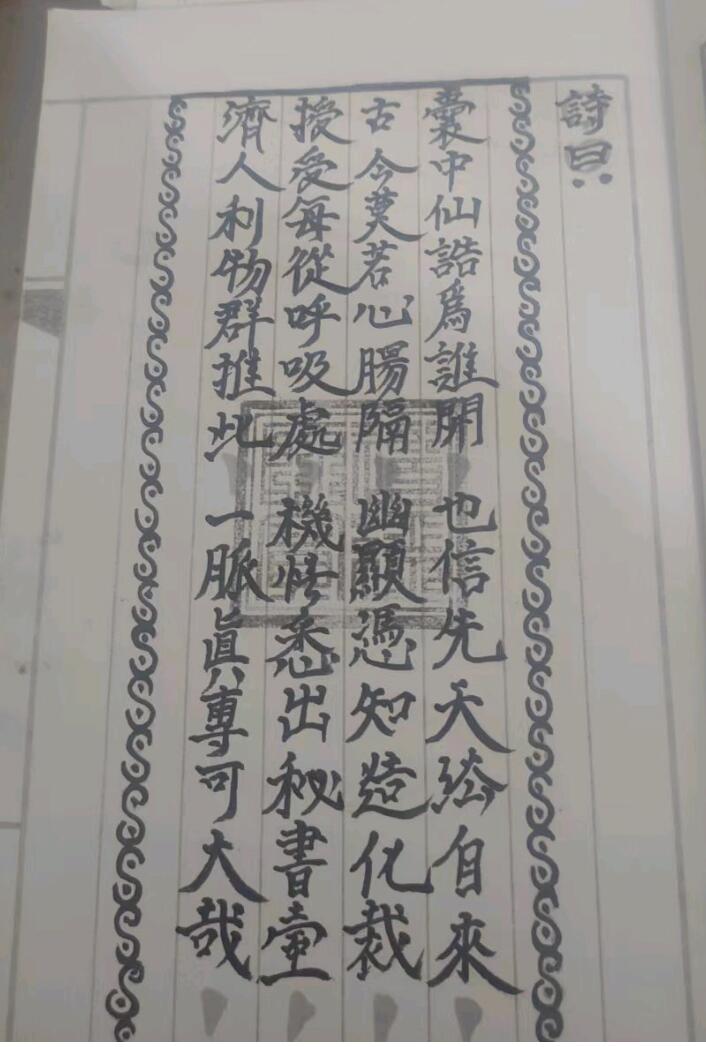 詩曰
囊中仙誥為誰開 也信先天給自來
古今莫若心腸隔 幽顯憑知造化裁
授受每從呼吸處 機悟悉出秘書壷
濟人利物群推此 一脈真專可大哉